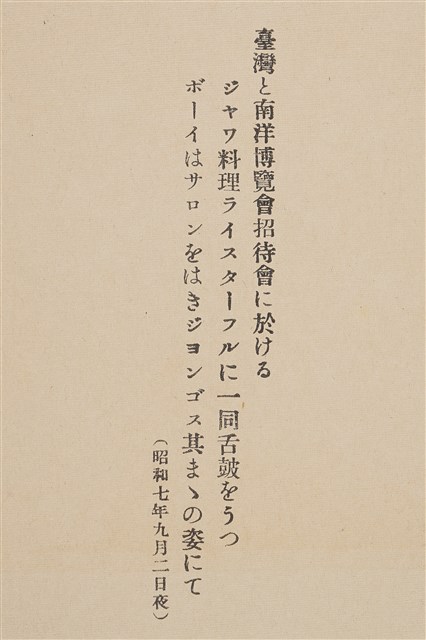 臺灣と南洋博覽會招待會に於ける
ジャワ料理ライスターフルに一同舌皷をうつ
ボーイはサロンをはきジヨンゴス其まゝの姿にて
(昭和七年九月二日夜)